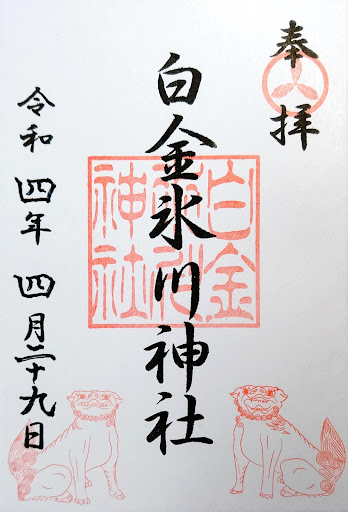 奉拝
白金氷川神社
白金
神社
令和四年 四月二十九日